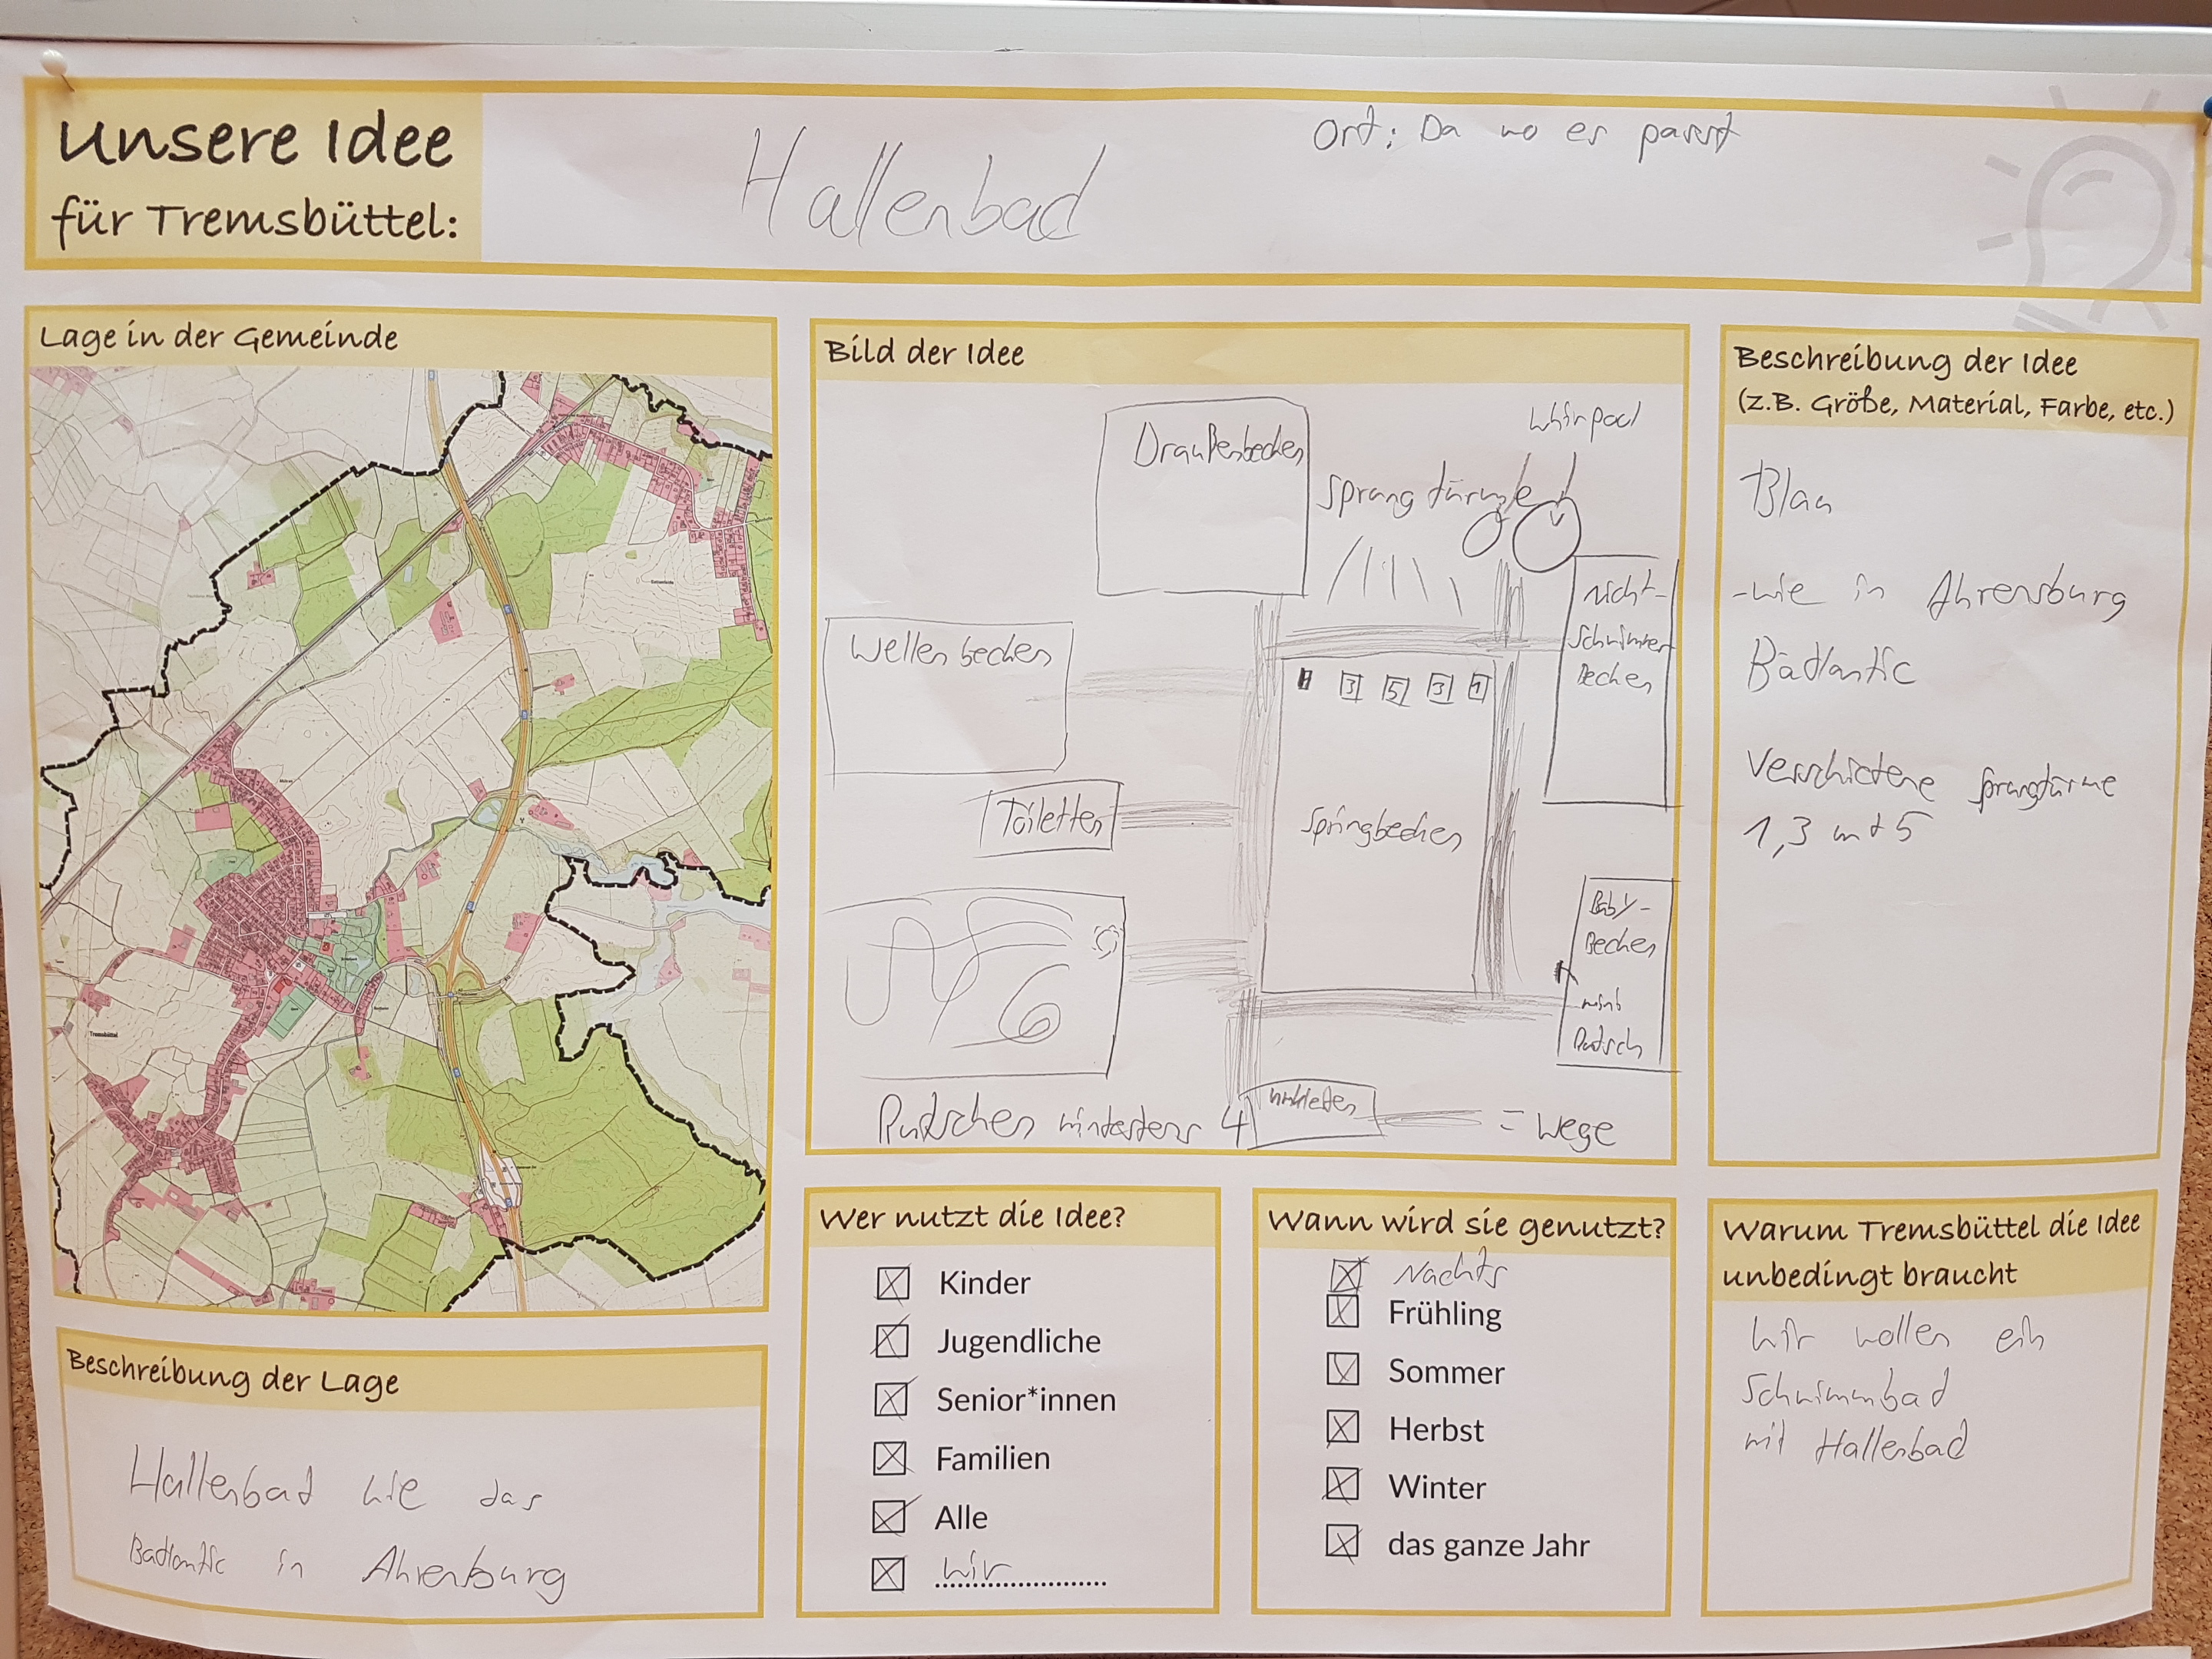 Unsere Idee
für Tremsbüttel:
Hallenbad
Ort: Da wo es passt
Lage in der Gemeinde
Tremsbüttel
Beschreibung der Lage
Hallenbad wie das
Badlantic in Ahrenburg
Bild der Idee
Draußenbecken
whirpool
Sprung türme
Wellenbecken
nicht-
schwimmer
Becken
3 5 3 1
Toiletten
Springbecken
Baby-
Becken
mini
Rutsch
Rutschen mindestens 4
umkleiden
= Wege
Beschreibung der Idee
(z.B. Größe, Material, Farbe, etc.)
Blau
-wie in Ahrensburg
Badlantic
Verschidene Sprungtürme
1,3 und 5
Wer nutzt die Idee?
Kinder
Jugendliche
Senior*innen
Familien
Alle
wir
Wann wird sie genutzt?
Nachts
Frühling
Sommer
Herbst
Winter
das ganze Jahr
Warum Tremsbüttel die Idee
unbedingt braucht
Wir wollen ein
Schwimmbad
mit Hallenbad